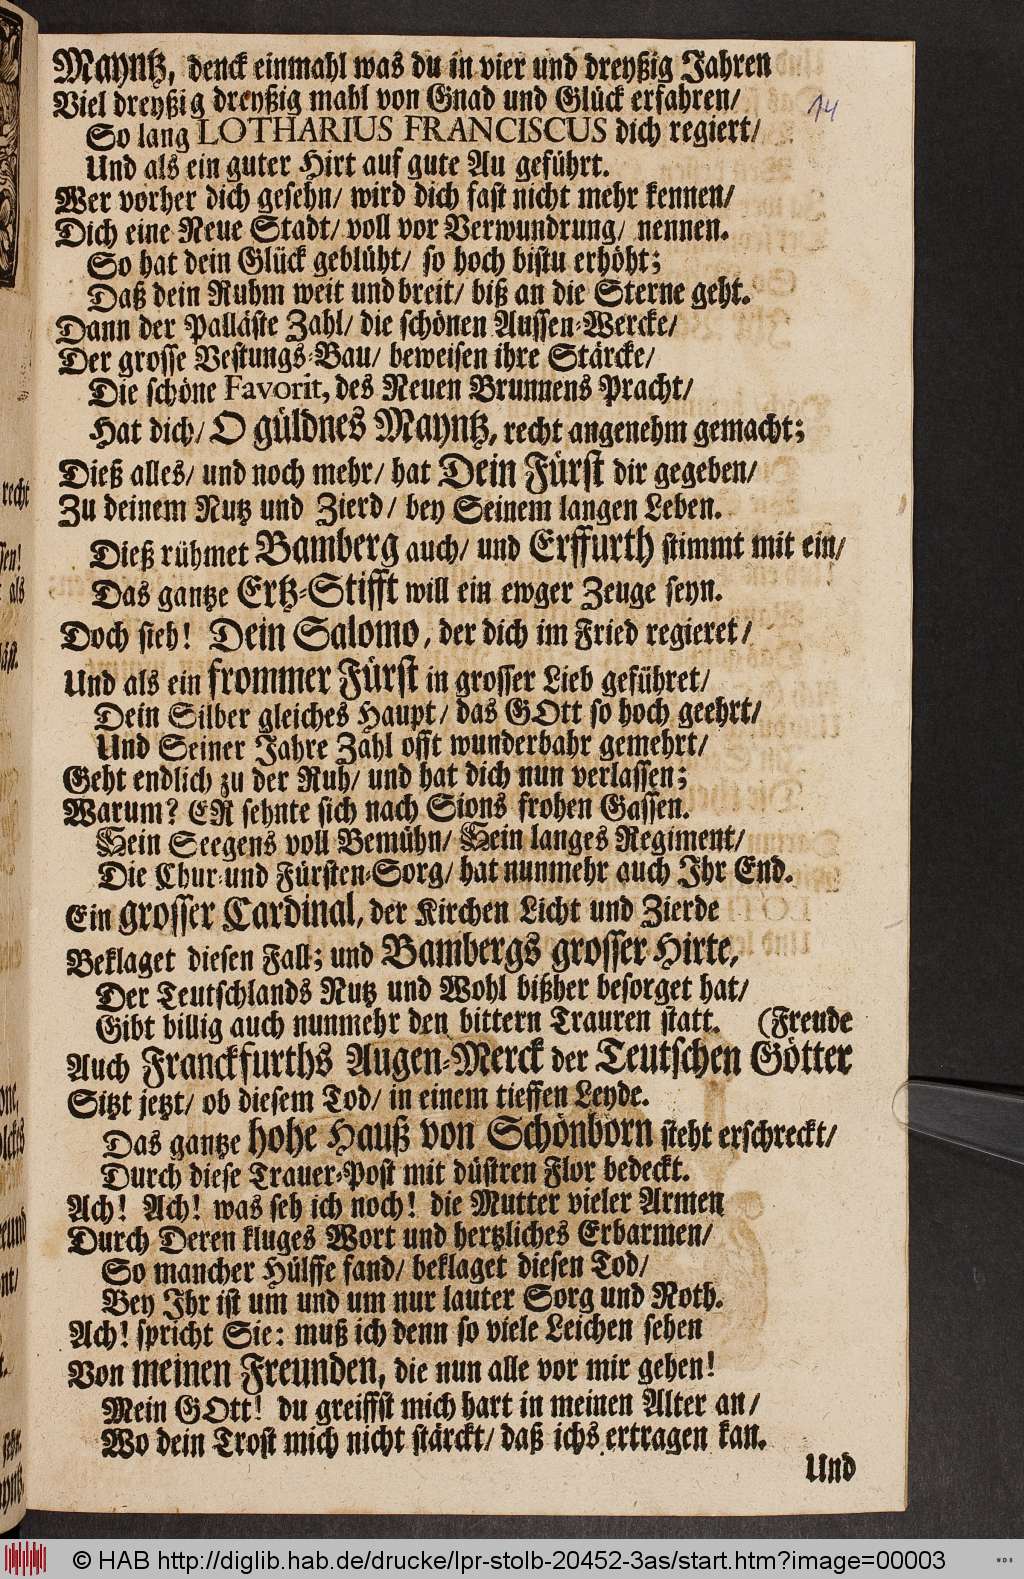 Mayntz, denck einmahl was du in vier und dreyßig Jahren
Viel dreyßig dreyßig mahl von Gnad und Glück erfahren/
So lang LOTHARIUS FRANCISCUS dich regiert/
Und als ein guter Hirt auf gute Au geführt.
Wer vorher dich gesehn/ wird dich fast nicht mehr kennen/
Dich eine Neue Stadt/ voll vor Verwundrung/ nennen.
So hat dein Glück geblüht/ so hoch bistu erhöht;
Daß dein Ruhm weit und breit/ biß an die Sterne geht.
Dann der Palläste Zahl/ die schönen Aussen-Wercke/
Der grosse Vestungs-Bau/ beweisen ihre Stärcke/
Die schöne Favorit, des Neuen Brunnens Pracht/
Hat dich/ O güldnes Mayntz, recht angenehm gemacht;
Dieß alles/ und noch mehr/ hat Dein Fürst dir gegeben/
Zu deinem Nutz und Zierd/ bey Seinem langen Leben.
Dieß rühmet Bamberg auch/ und Erffurth stimmt mit ein/
Das gantze Ertz-Stifft will ein ewger Zeuge seyn.
Doch sieh! Dein Salomo, der dich im Fried regieret/
Und als ein frommer Fürst in grosser Lieb geführet/
Dein Silber gleiches Haupt/ das GOtt so hoch geehrt/
Und Seiner Jahre Zahl offt wunderbahr gemehrt/
Geht endlich zu der Ruh/ und hat dich nun verlassen;
Warum? ER sehnte sich nach Sions frohen Gassen.
Sein Seegens voll Bemühn/ Sein langes Regiment/
Die Chur-und Fürsten-Sorg/ hat nunmehr auch Ihr End.
Ein grosser Cardinal, der Kirchen Licht und Zierde
Beklaget diesen Fall; und Bambergs grosser Hirte,
Der Teutschlands Nutz und Wohl bißher besorget hat/
Gibt billig auch nunmehr den bittern Trauren statt. (Freude
Auch Franckfurths Augen-Merck der Teutschen Götter
Sitzt jetzt/ ob diesem Tod/ in einem tieffen Leyde.
Das gantze hohe Hauß von Schönborn steht erschreckt/
Durch diese Trauer-Post mit düstren Flor bedeckt.
Ach! Ach! was seh ich noch! die Mutter vieler Armen
Durch Deren kluges Wort und hertzliches Erbarmen/
So mancher Hülffe fand/ beklaget diesen Tod/
Bey Ihr ist um und um nur lauter Sorg und Noth.
Ach! spricht Sie: muß ich denn so viele Leichen sehen
Von meinen Freunden, die nun alle vor mir gehen!
Mein GOtt! du greiffst mich hart in meinen Alter an/
Wo dein Trost mich nicht stärckt/ daß ichs ertragen kan.
Und
14
© HAB http://diglib.hab.de/drucke/lpr-stolb-20452-3as/start.htm?image=00003